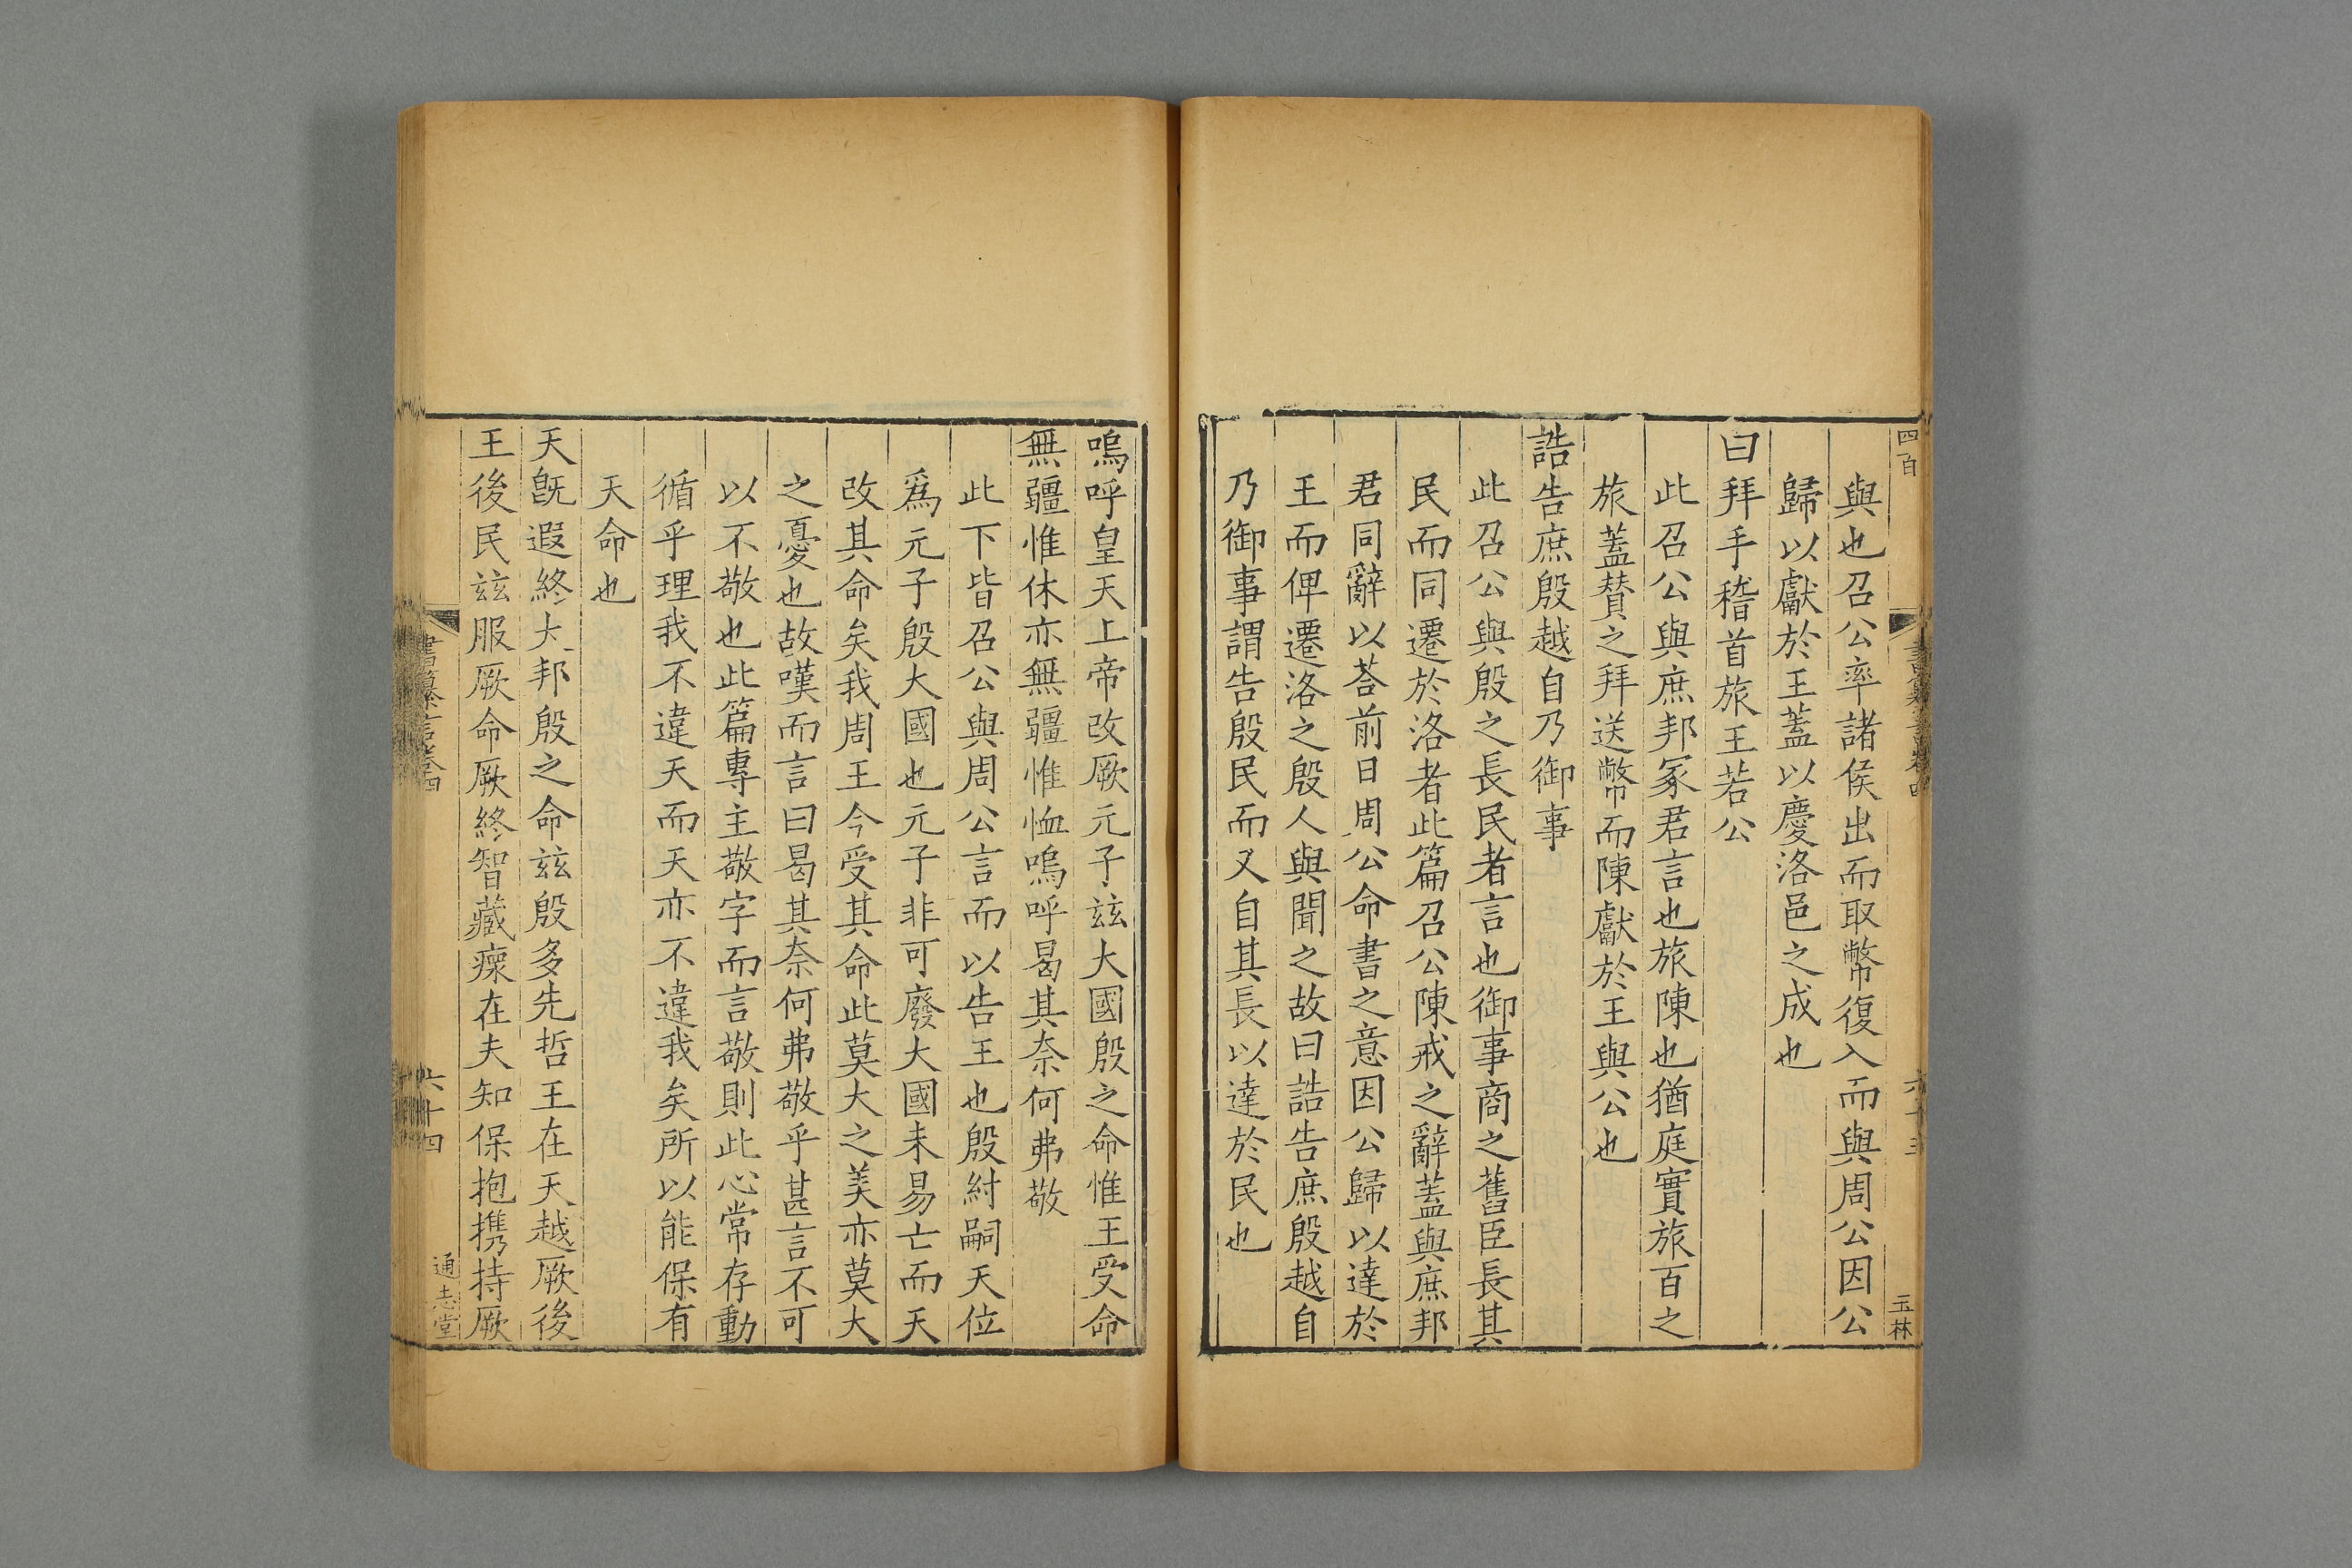 四百
書纂言卷四
六十三
玉林
與也召公率諸侯出而取幣復入而與周公因公
歸以獻於王蓋以慶洛邑之成也
曰拜手稽首旅王若公
此召公與庶邦冢君言也旅陳也猶庭實旅百之
旅蓋賛之拜送幣而陳獻於王與公也
誥告庶殷越自乃御事
此召公與殷之長民者言也御事商之舊臣長其
民而同遷於洛者此篇召公陳戒之辭蓋與庶邦
君同辭以荅前日周公命書之意因公歸以達於
王而俾遷洛之殷人與聞之故曰誥告庶殷越自
乃御事謂告殷民而又自其長以達於民也
嗚呼皇天上帝改厥元子兹大國殷之命惟王受命
無疆惟休亦無疆惟恤嗚呼曷其奈何弗敬
此下皆召公與周公言而以告王也殷紂嗣天位
爲元子殷大國也元子非可廢大國未易亡而天
改其命矣我周王今受其命此莫大之美亦莫大
之憂也故嘆而言曰曷其奈何弗敬乎甚言不可
以不敬也此篇專主敬字而言敬則此心常存動
循乎理我不違天而天亦不違我矣所以能保有
天命也
天旣遐終大邦殷之命兹殷多先哲王在天越厥後
王後民兹服厥命厥終智藏瘝在夫知保抱携持厥
書纂言卷四
六十四
通志堂